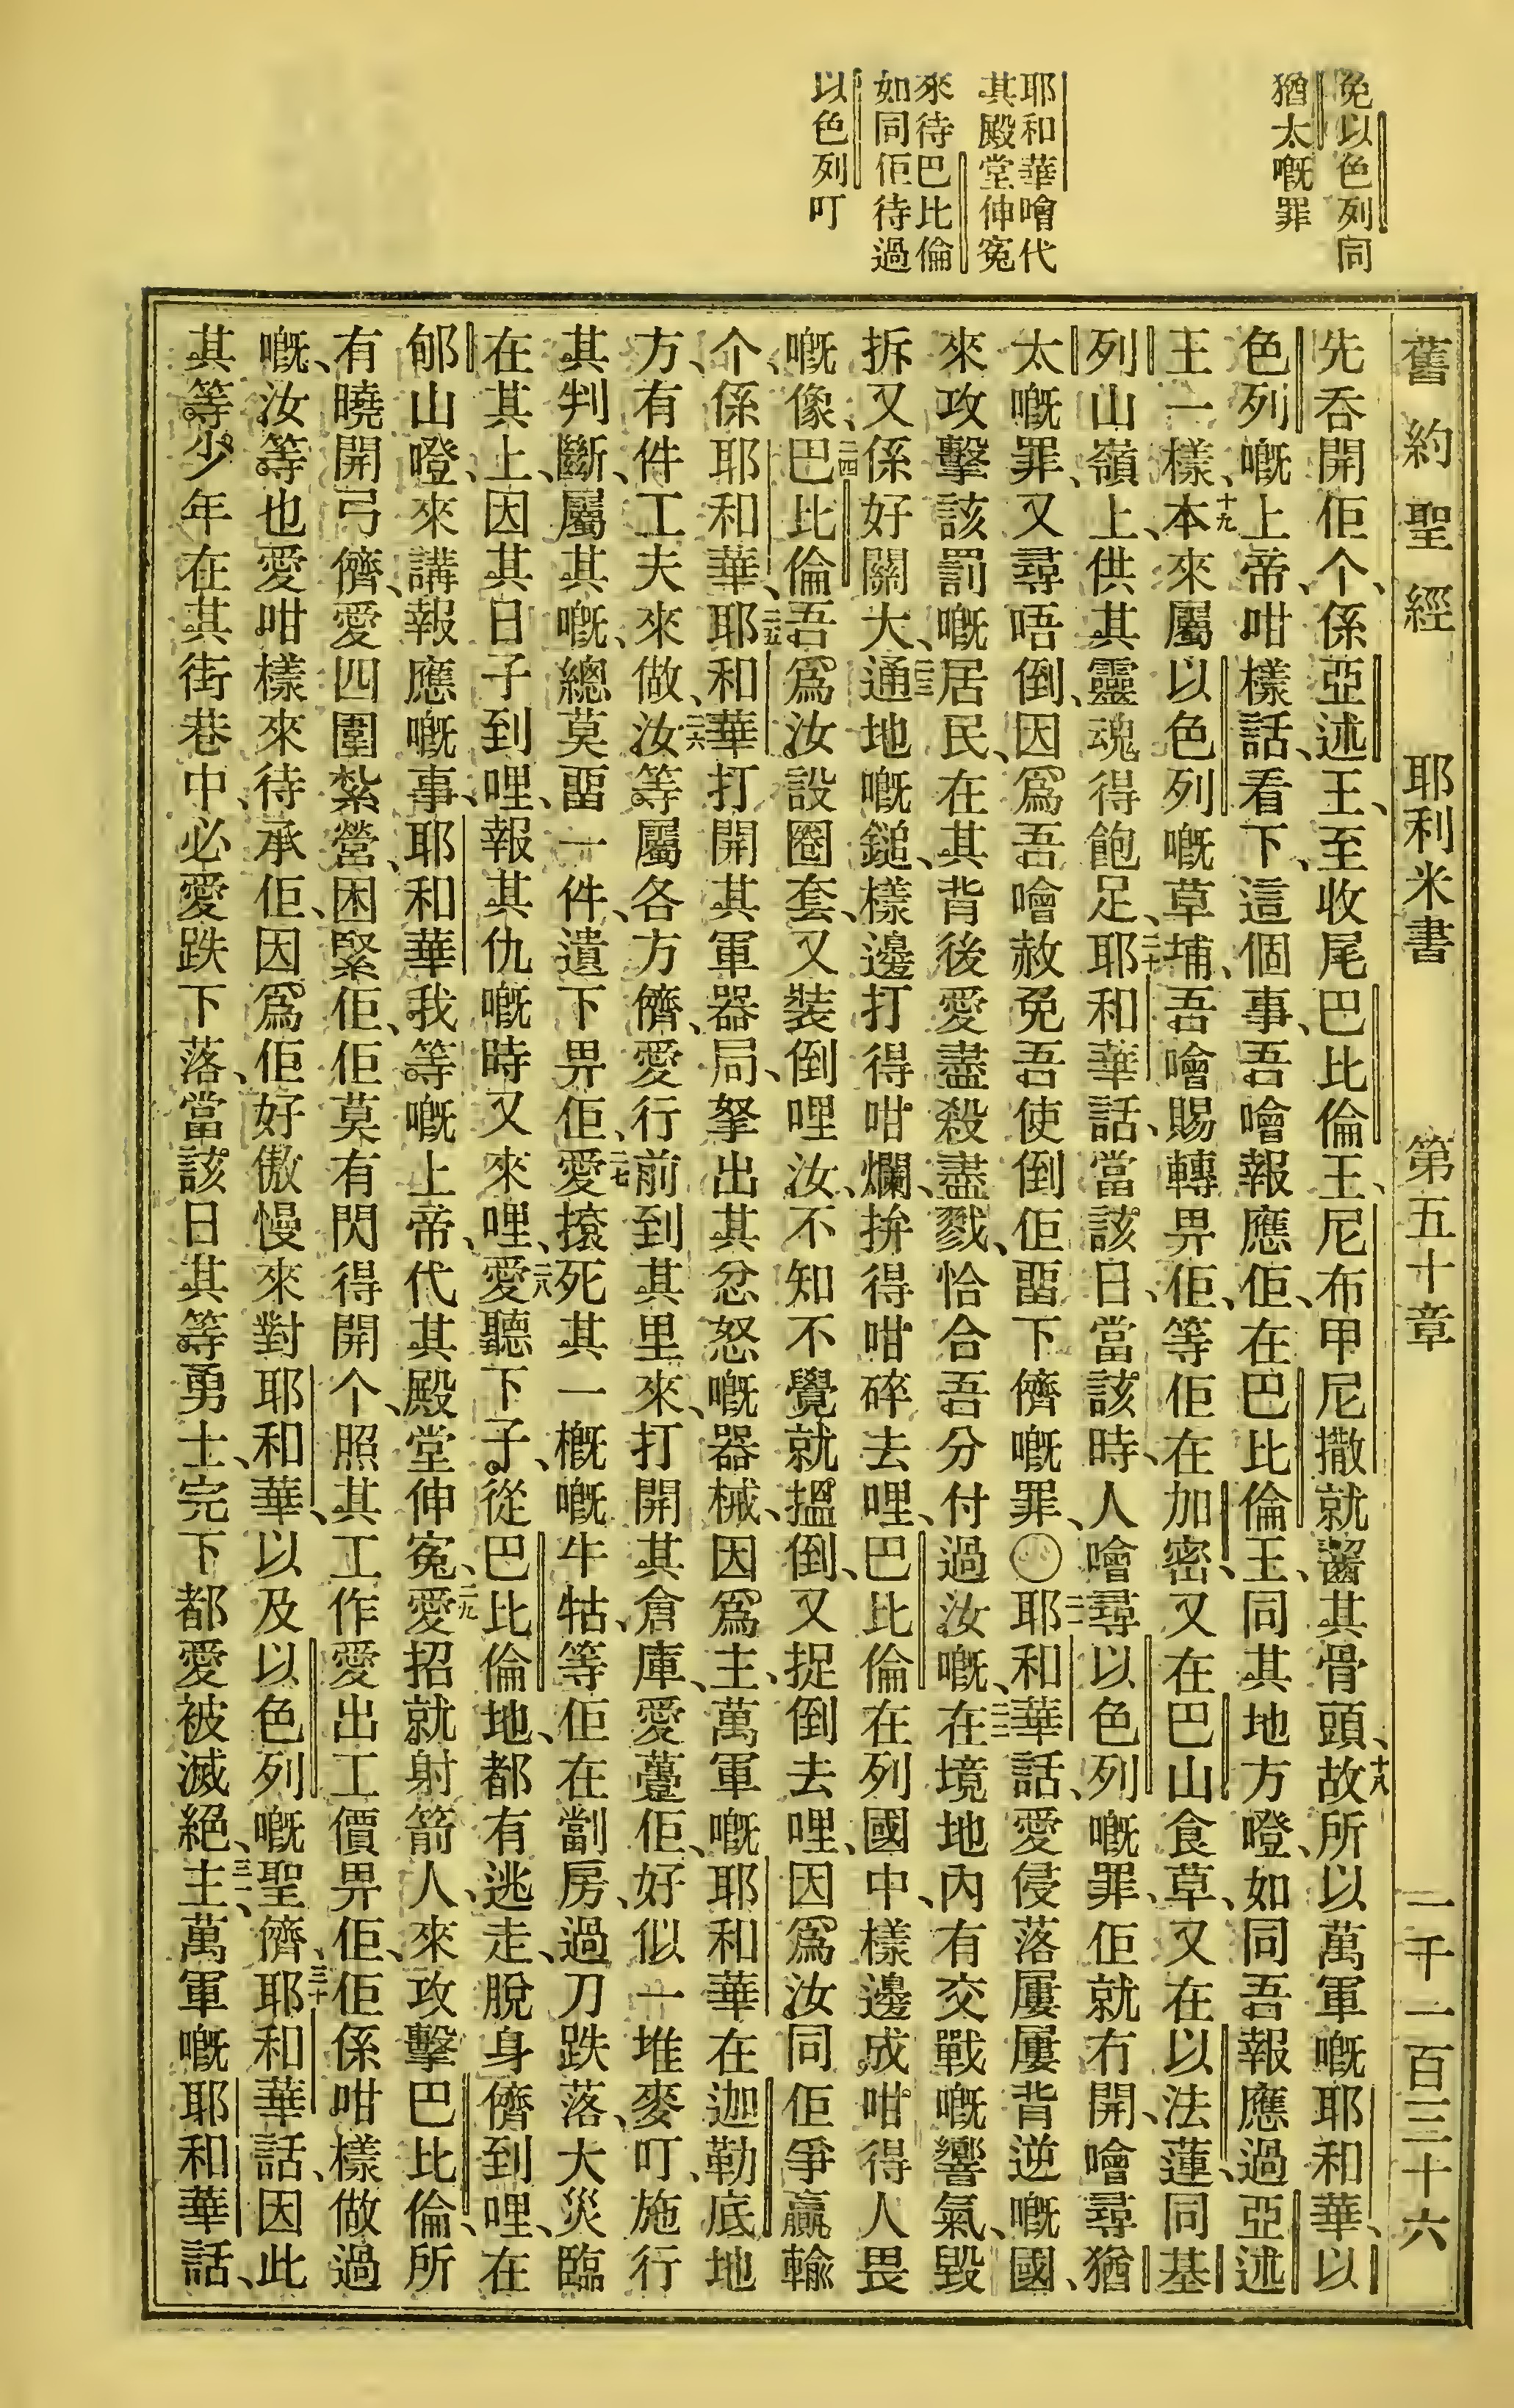 免以色列同
猶太嘅罪
耶和華噲代
其殿堂伸寃
來待巴比倫
如同佢待過
以色列叮
舊約聖經 耶利米書 第五十章 一千一百三十六
先吞開佢个、係亞述王、至收尾巴比倫王、尼布甲尼撒就齧其骨頭、十八故所以萬軍嘅耶和華、以
色列嘅上帝、咁樣話、看下、這個事、吾噲報應佢、在巴比倫王、同其地方噔、如同吾報應過亞述
王一樣、十九本來屬以色列嘅草埔、吾噲賜轉畀佢、等佢在加密、又在巴山食草、又在以法蓮、同基
列山嶺上、供其靈魂得飽足、二十耶和華話、當該日、當該時、人噲尋以色列嘅罪、佢就冇開、噲尋猶
太嘅罪、又尋唔倒、因爲吾噲赦免吾使倒佢畱下儕嘅罪、〇二一耶和華話、愛侵落屢屢背逆嘅國、
來攻擊該罰嘅居民、在其背後愛盡殺盡戮、恰合吾分付過汝嘅、二二在境地內有交戰嘅響氣、毀
拆又係好關大、二三通地嘅鎚、樣邊打得咁爛、拚得咁碎去哩、巴比倫在列國中、樣邊成咁得人畏
嘅像、二四巴比倫吾爲汝設圈套、又裝倒哩汝、不知不覺就搵倒、又捉倒去哩、因爲汝同佢爭贏輸
个、係耶和華、二五耶和華打開其軍器局、拏出其忿怒嘅器械、因爲主、萬軍嘅耶和華在迦勒底地
方、有件工夫來做、二六汝等屬各方儕、愛行前到其里來、打開其倉庫、愛躉佢、好似一堆麥叮、施行
其判斷、屬其嘅、總莫畱一件、遺下畀佢、二七愛㨰死其一概嘅牛牯、等佢在劏房、過刀跌落、大災臨
在其上、因其日子到哩、報其仇嘅時又來哩、二八愛聽下子、從巴比倫地、都有逃走、脫身儕到哩、在
郇山噔、來講報應嘅事、耶和華我等嘅上帝、代其殿堂伸寃、二九愛招就射箭人、來攻擊巴比倫、所
有曉開弓儕、愛四圍紮營、困緊佢、佢莫有閃得開个、照其工作愛出工價畀佢、佢係咁樣做過
嘅、汝等也愛咁樣來待承佢、因爲佢好傲慢來對耶和華、以及以色列嘅聖儕、三十耶和華話、因此
其等少年在其街巷中、必愛跌下落、當該日其等勇士、完下都愛被滅絕、三一主、萬軍嘅耶和華話、